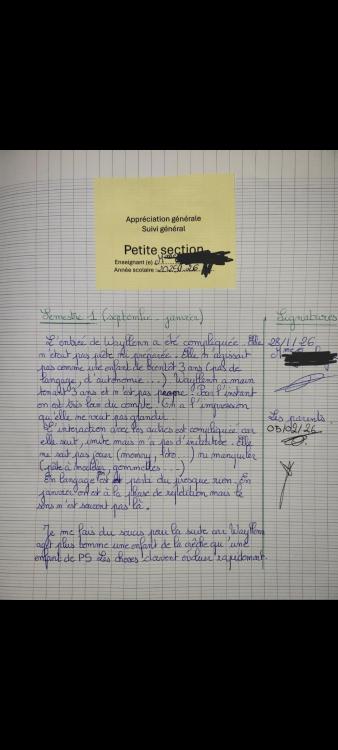 Appréciation générale
Suivi général
Petite section
Enseignant (e)
Année scolaire : 2025/26
Semestre 1 (septembre - janvier)
Signatures
L'entrée de Wayllenn a été compliquée. Elle
n'était pas prête ni préparée. Elle n'agissait
pas comme une enfant de bientôt 3 ans (pas de
langage, d'autonomie ...). Wayllenn a main
tenant 3 ans et n'est pas propre. Pour l'instant
on est très loin du compte. On a l'impression
qu'elle ne veut pas grandir.
L'interaction avec les autres est compliquée car
elle suit, imite mais n'a pas d'initiative. Elle
ne sait pas jouer (memory, loto...) ni manipuler
(pâte à modeler, gommettes ...)
En langage, est partie du presque rien. En
janvier on est à la phase de répétition mais le
sens n'est souvent pas là.
Je me fais du soucis pour la suite car Wayllenn
agit plus comme une enfant de la crèche qu'une
enfant de PS. Les choses doivent évoluer rapidement.
28/1/26
Les parents
05/02/26